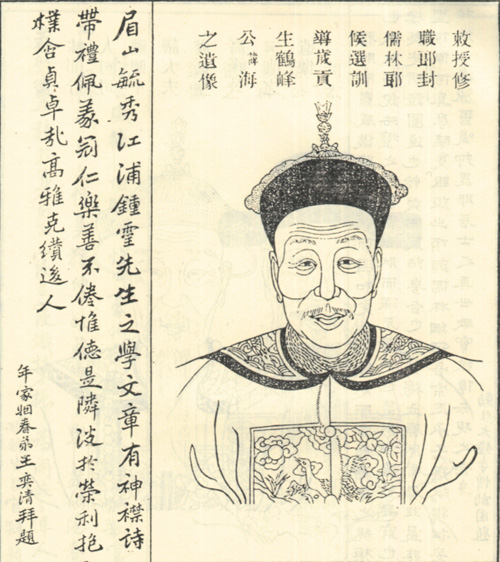 敕授修
職郎封
儒林郎
候選訓
導歲貢
生鶴峰
公諱海
之遺像
眉山毓秀江浦鍾靈先生之學文章有神襟詩
帶禮佩義冠仁樂善不倦惟德是隣淡於榮利抱
樸含貞卓哉高雅克纘逡人
年家姻眷弟王奕清拜題